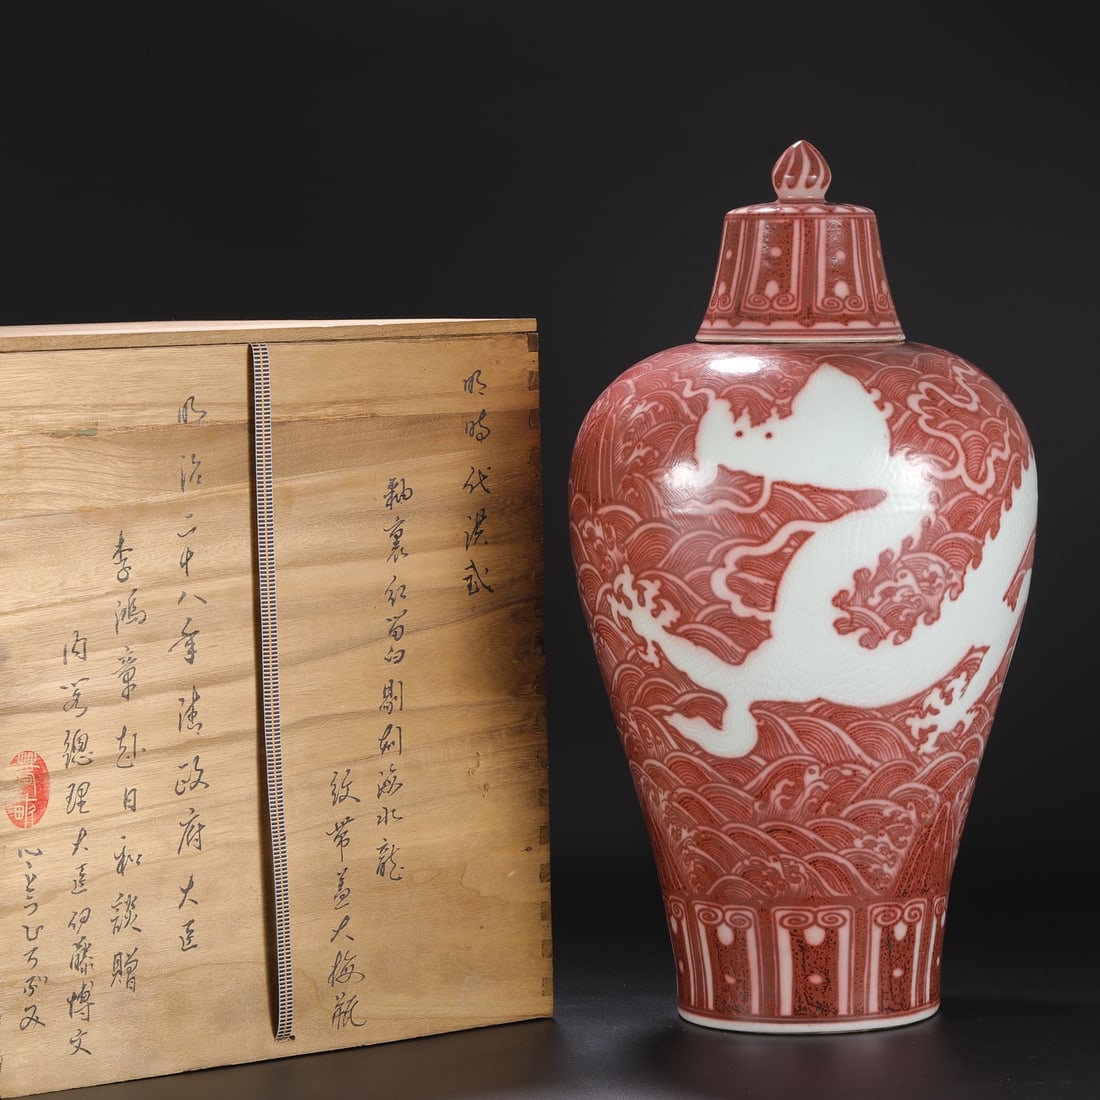 明時代洪武
釉裏紅留白剔刻海水龍
紋帶蓋大梅瓶
明治二十八年清政府大臣
李鴻章赴日和談贈
內閣總理大臣伊藤博文